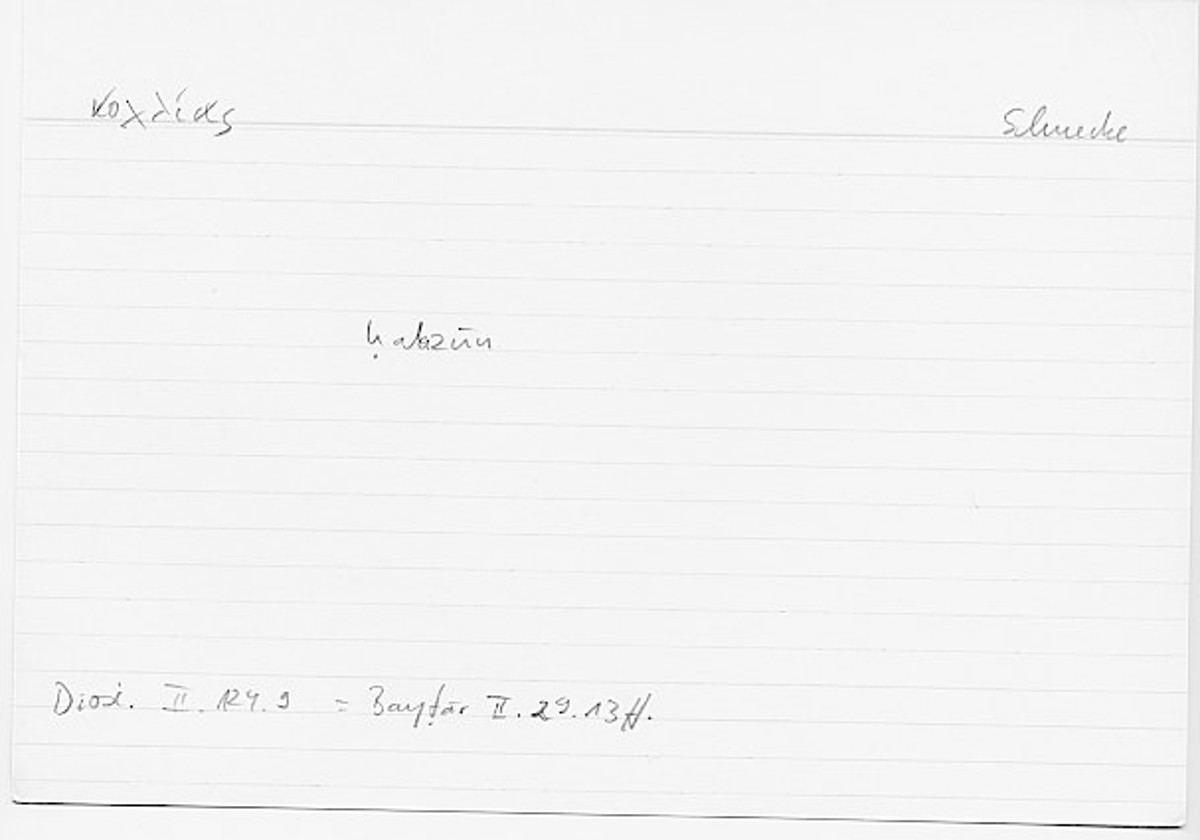 κοχλίας Schnecke
ḥalazūn
Diosk. II. 124.9 = Bayṭār II. 29.13 ff.